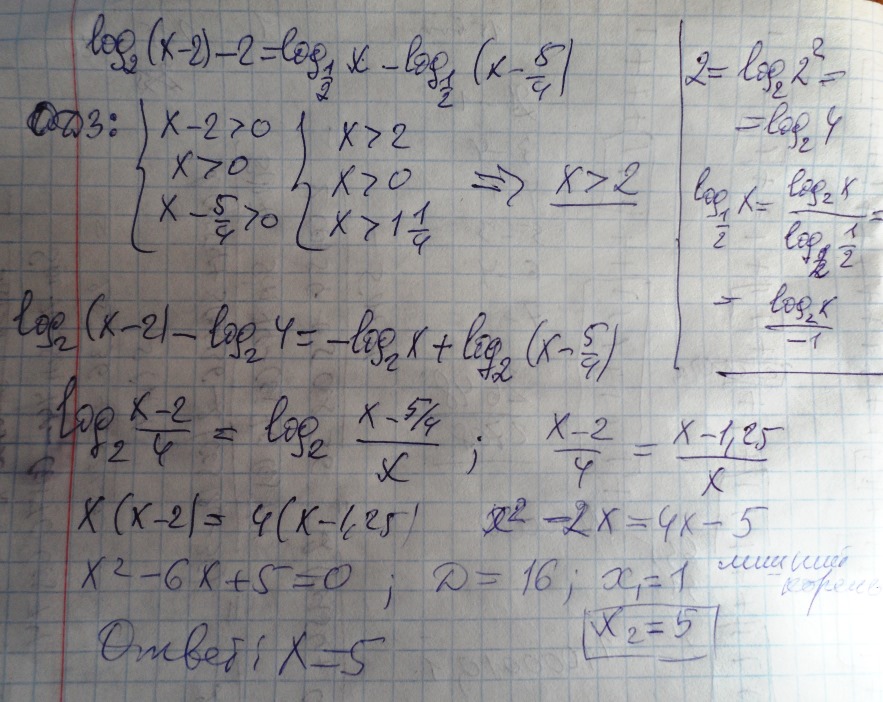 log₂(x-2)-2=log_{1/2} x - log_{1/2} (x - 5/4)
ОДЗ: { x-2>0 { x>2
x>0 x>0 ⇒ x>2
x - 5/4 >0 x>1 1/4
2 = log₂ 2² =
= log₂ 4
log_{1/2} x = log₂ x / log₂ 1/2 =
= log₂ x / -1
log₂ (x-2) - log₂ 4 = -log₂ x + log₂ (x - 5/4)
log₂ (x-2)/4 = log₂ (x - 5/4)/x ; (x-2)/4 = (x-1,25)/x
x(x-2) = 4(x-1,25) x² - 2x = 4x - 5
x² - 6x + 5 = 0 ; D = 16 ; x₁ = 1 лишний корень
x₂ = 5
Ответ: x = 5